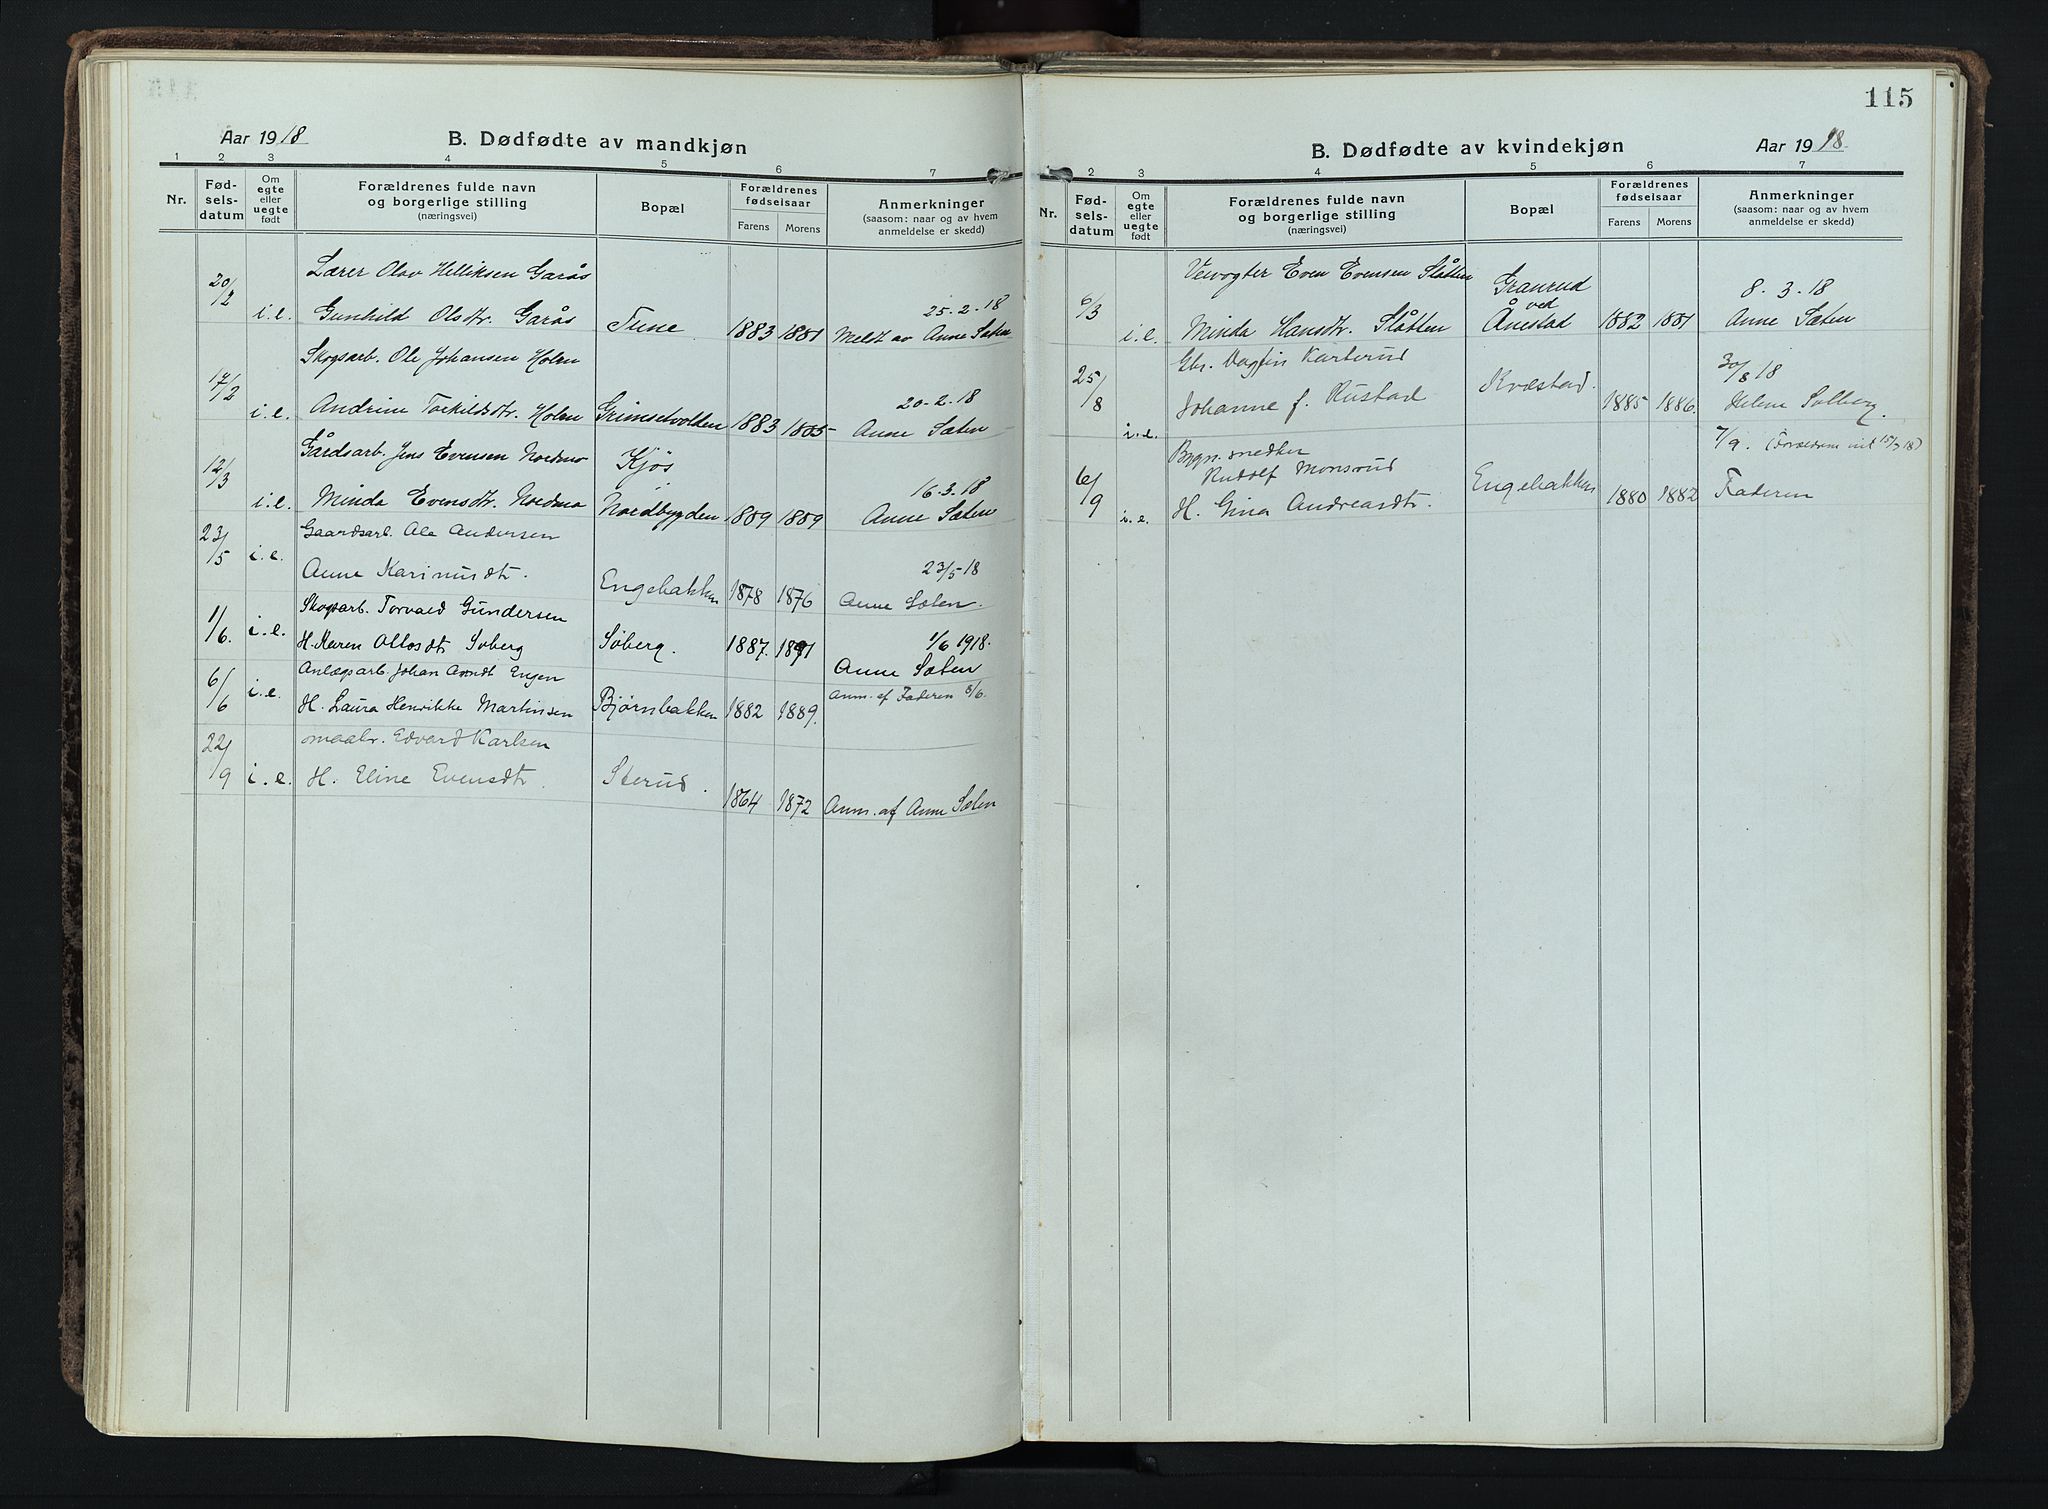 Aar 1918
B. Dødfødte av mandkjøn
1 2 3 4 5 6 7
Nr.
Fød-
sels-
datum
Om
egte
eller
uegte
født
Forældrenes fulde navn
og borgerlige stilling
(næringsvei)
Bopæl
Forældrenes
fødselsaar
Farens Morens
Anmerkninger
(saasom: naar og av hvem
anmeldelse er skedd)
Lærer Olav Helliksen Garås
20/2 i.e. Gunhild Olsdtr. Garås Tune 1883 1881 25-2-18
Meldt av Anne Sæten
Skogsarb. Ole Johansen Holen
17/2 i.e. Andrine Torkildsdtr. Holen Skimsetvolden 1883 1885 20-2-18
Anne Sæten
Gårdsarb. Jens Evensen Nordmo Kjös
12/3 i.e. Minda Evensdtr. Nordmo Nordbygden 1889 1889 16-3-18
Anne Sæten
23/5 i.e. Gaardsarb. Ole Andersen
Anne Karinusdtr. Engebakken 1878 1876 23/5-18
Anne Sæten.
1/6. i.e. Skogsarb. Torvald Gundersen
H. Karen Ottosdtr Søberg Søberg. 1887. 1891 1/6 1918.
Anne Sæten
6/6 i.e. Anlægsarb. Johan Arndt Engen
H. Laura Henrikke Martinsen Bjørnbakken 1882 1889. Anm. af Faderen 8/6.
22/9 i.e. maalr. Edvard Karlsen
H. Eline Evensdtr. Sterud. 1864 1872 Anm. af Anne Sæten
115
B. Dødfødte av kvindekjøn
Aar 1918.
2 3 4 5 6 7
Nr.
Fød-
sels-
datum
Om
egte
eller
uegte
født
Forældrenes fulde navn
og borgerlige stilling
(næringsvei)
Bopæl
Forældrenes
fødselsaar
Farens Morens
Anmerkninger
(saasom: naar og av hvem
anmeldelse er skedd)
Veivogter Even Evensen Slåtten Granrud
ved
6/3 i.e. Minda Hansdtr. Slåtten Ånestad 1882 1881 8-3-18
Anne Sæten
25/8 i.e. Gbr. Dagfin Karterud
Johanne f. Rustad Kvæstad. 1885 1886. 30/8 18
Helene Solberg.
6/9 i.e. Bygn. snedker
Rudolf Monsrud
H. Gina Andreasdtr. Engebakken 1880 1882 7/9. 15/7 18)
Faderen